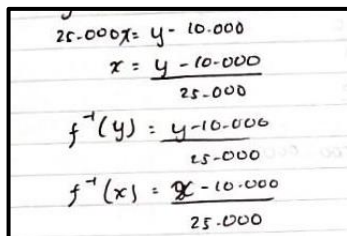 25.000x = y - 10.000
x = y - 10.000
25.000
f⁻¹(y) = y - 10.000
25.000
f⁻¹(x) = x - 10.000
25.000